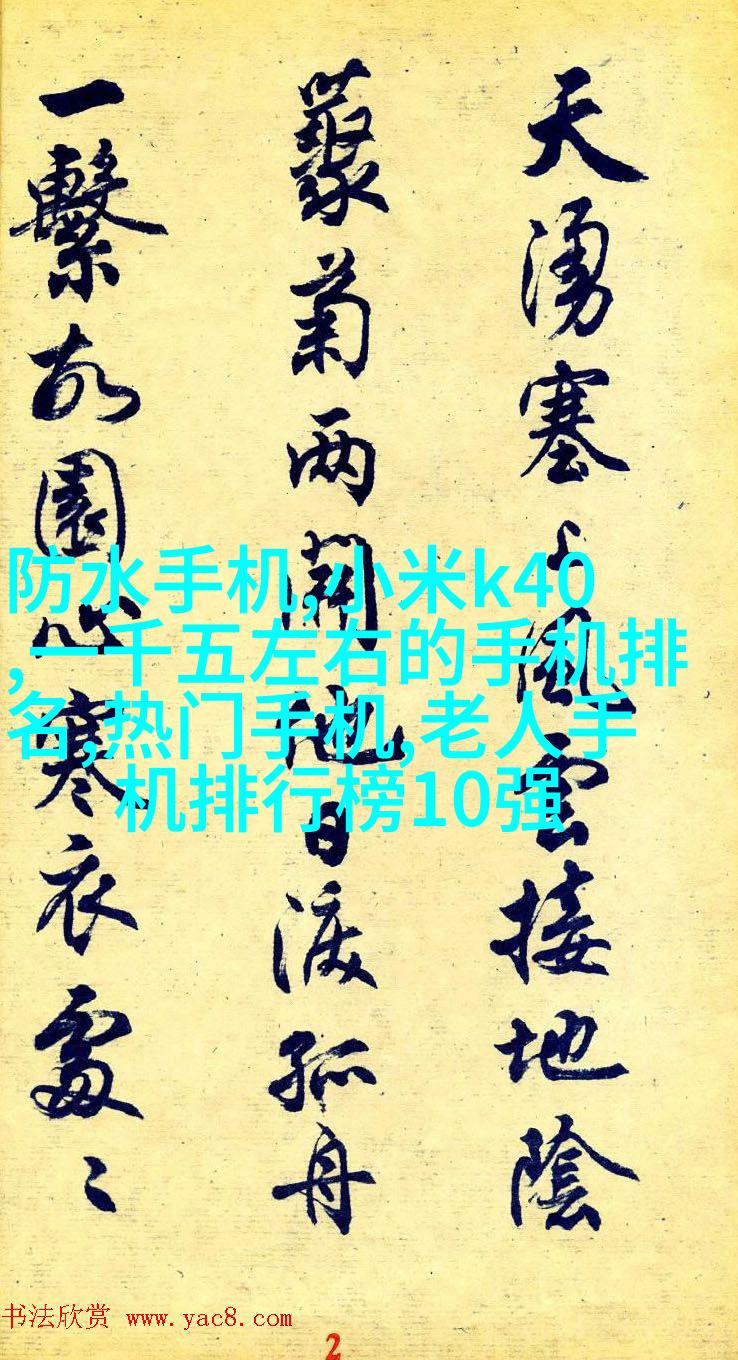 天湧塞上風雲接地陰
藂菊两開他日淚孤舟
一繫故園心寒衣處〻
防水手机,小米k40
,一千五左右的手机排
名,热门手机,老人手
机排行榜10强
书法欣赏 www.yac8.com
2